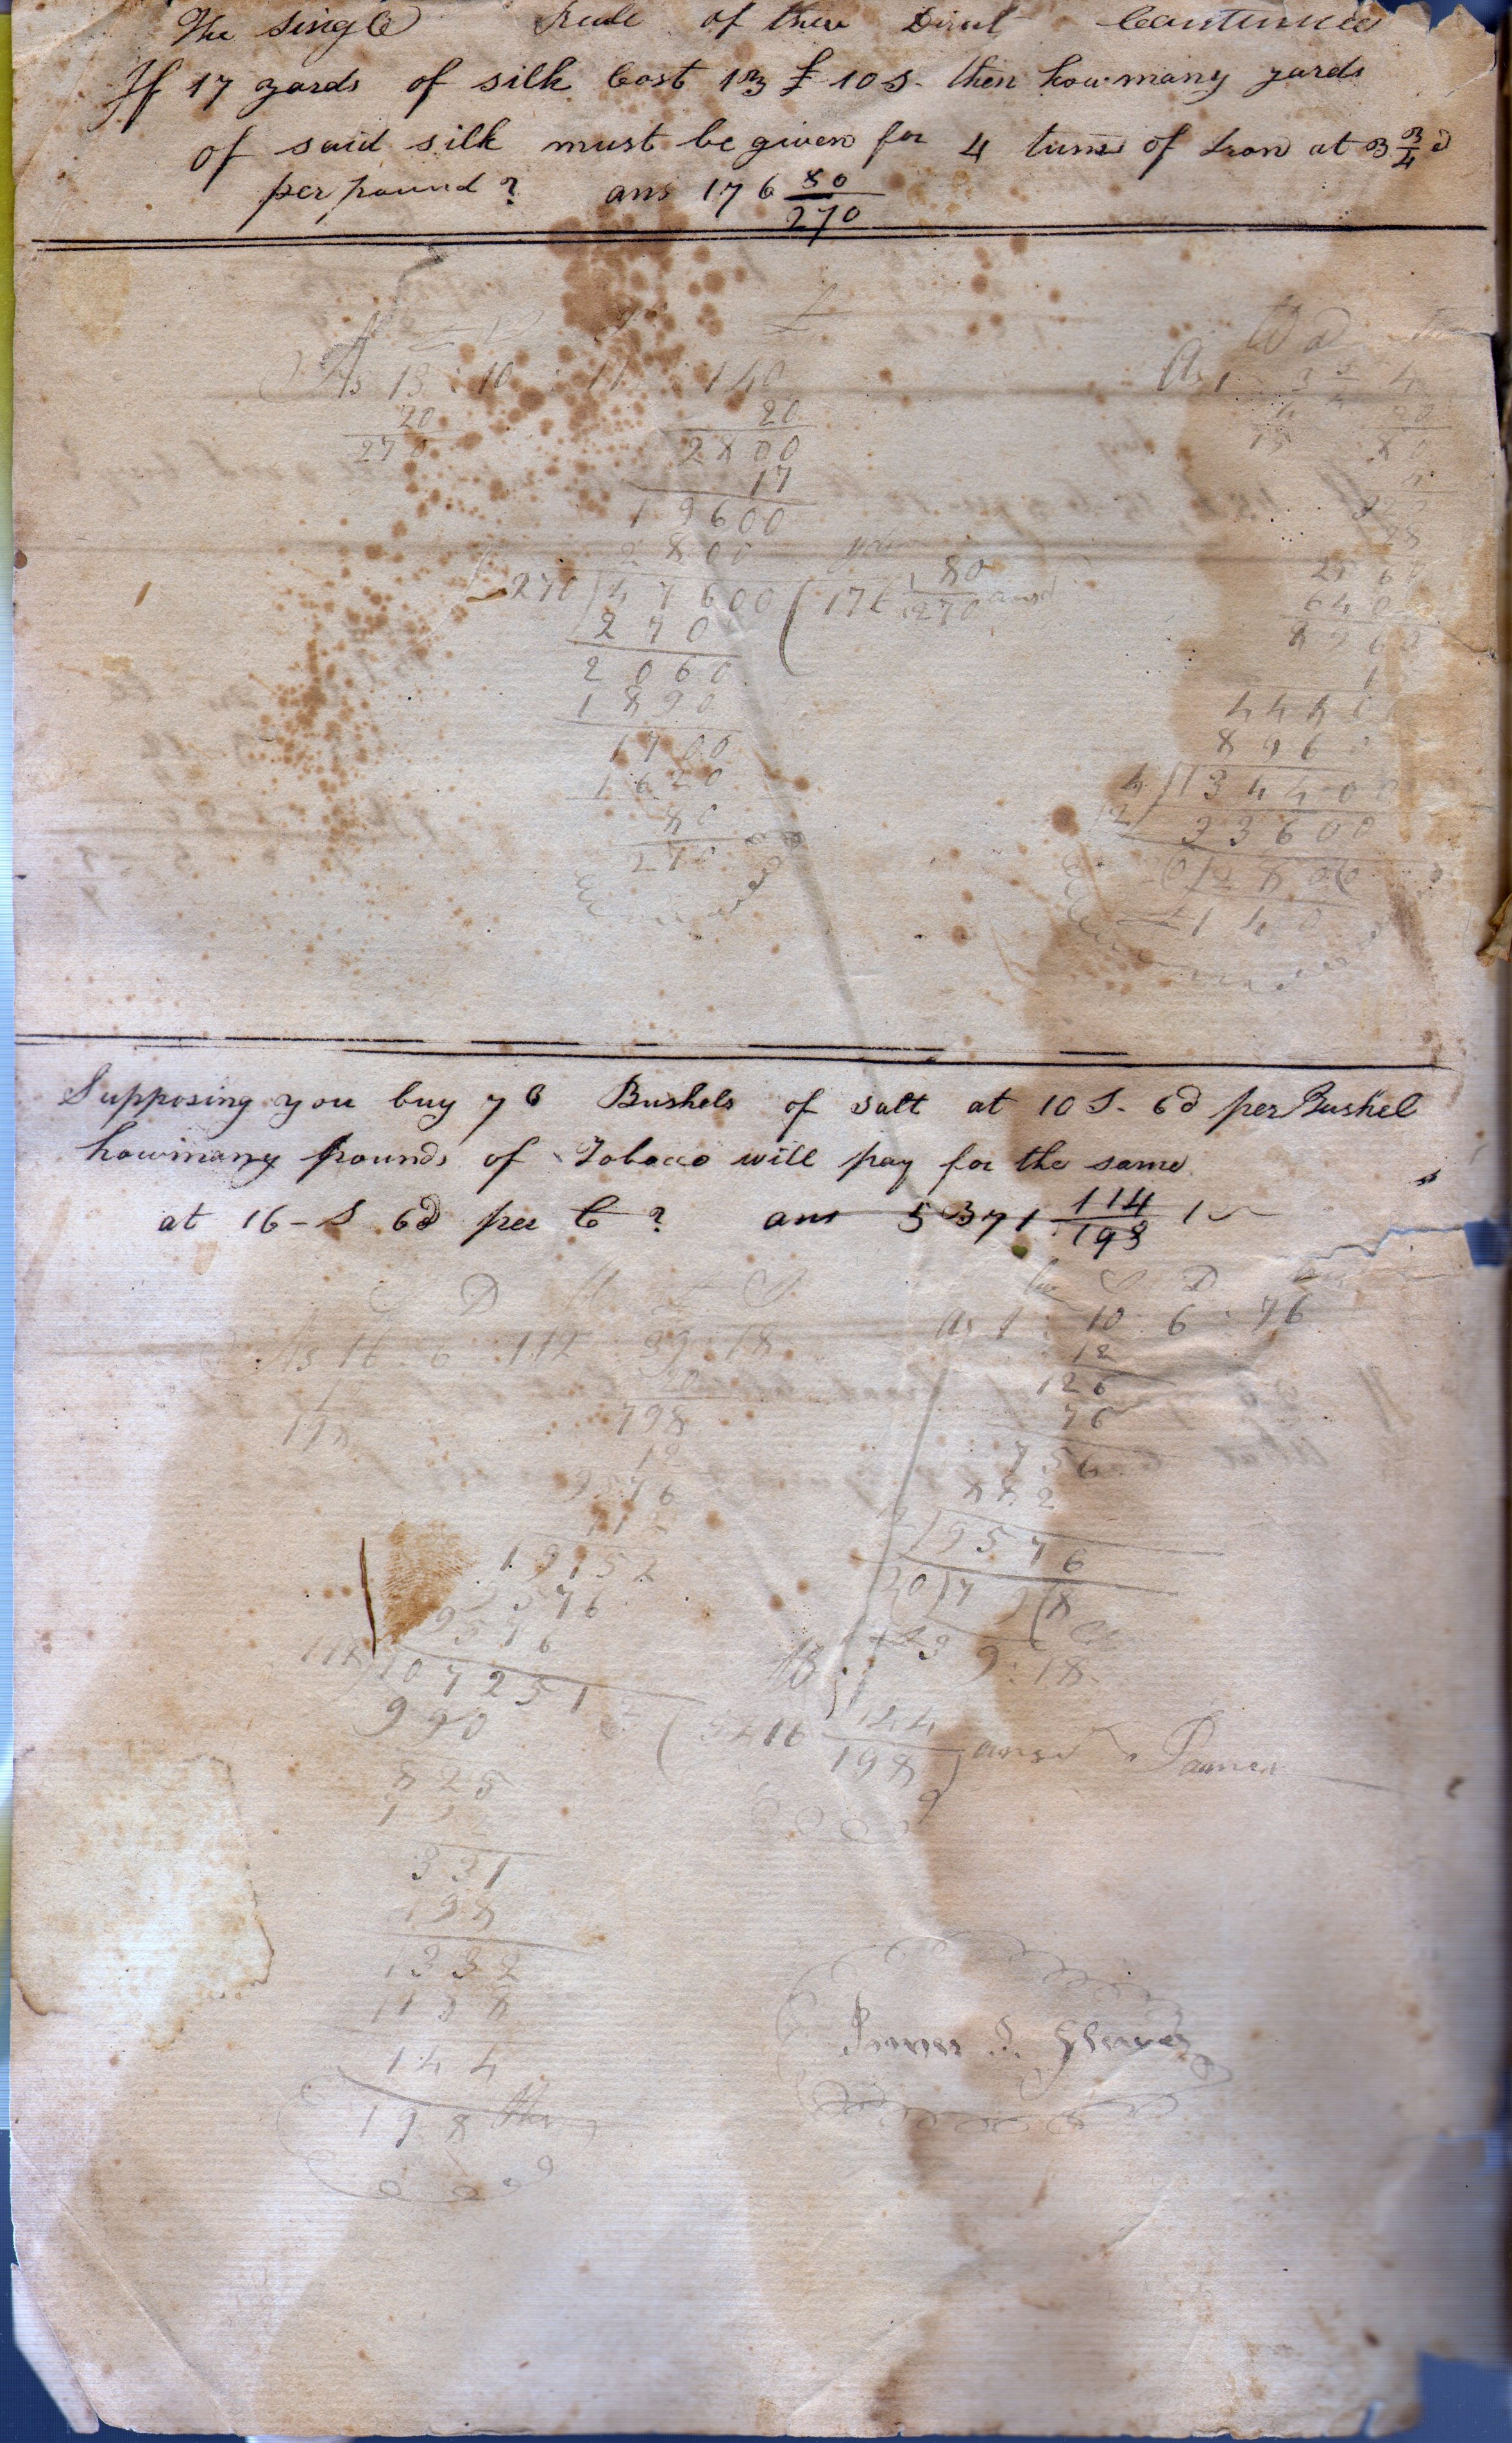 The Single Rule of three Direct Continued
If 17 yards of silk Cost 13 £ 10 s. then how many yards
of said silk must be given for 4 tuns of Iron at 3 3/4 d
per pound? ans 176 80/270
As 13 : 10 : 17 : 140
20 20
270 2800
17
19600
2800
270) 47600 (176 80/270 ansd
270
2060
1890
1700
1620
80
270
As 1 3 3/4 4
4 20
15 80
4
320
28
2560
640
8960
44800
8960
4) 134400
12) 33600
20) 2800
£ 140
Supposing you buy 76 Bushels of Salt at 10 S. 6d per Bushel
how many pounds of Tobacco will pay for the same
at 16 - S 6d per C? ans 5371 114/198
S D £ S
As 16 6 112 39 18
12 20
198 798
12
9576
112
19152
9576
9576
198) 1072512 (5416 144/198 ansd
990
825
331
198
1332
1188
144
198
As 1 : 10 : 6 : 76
12
126
76
756
882
12) 9576
20) 798
39 : 18
James
James S.